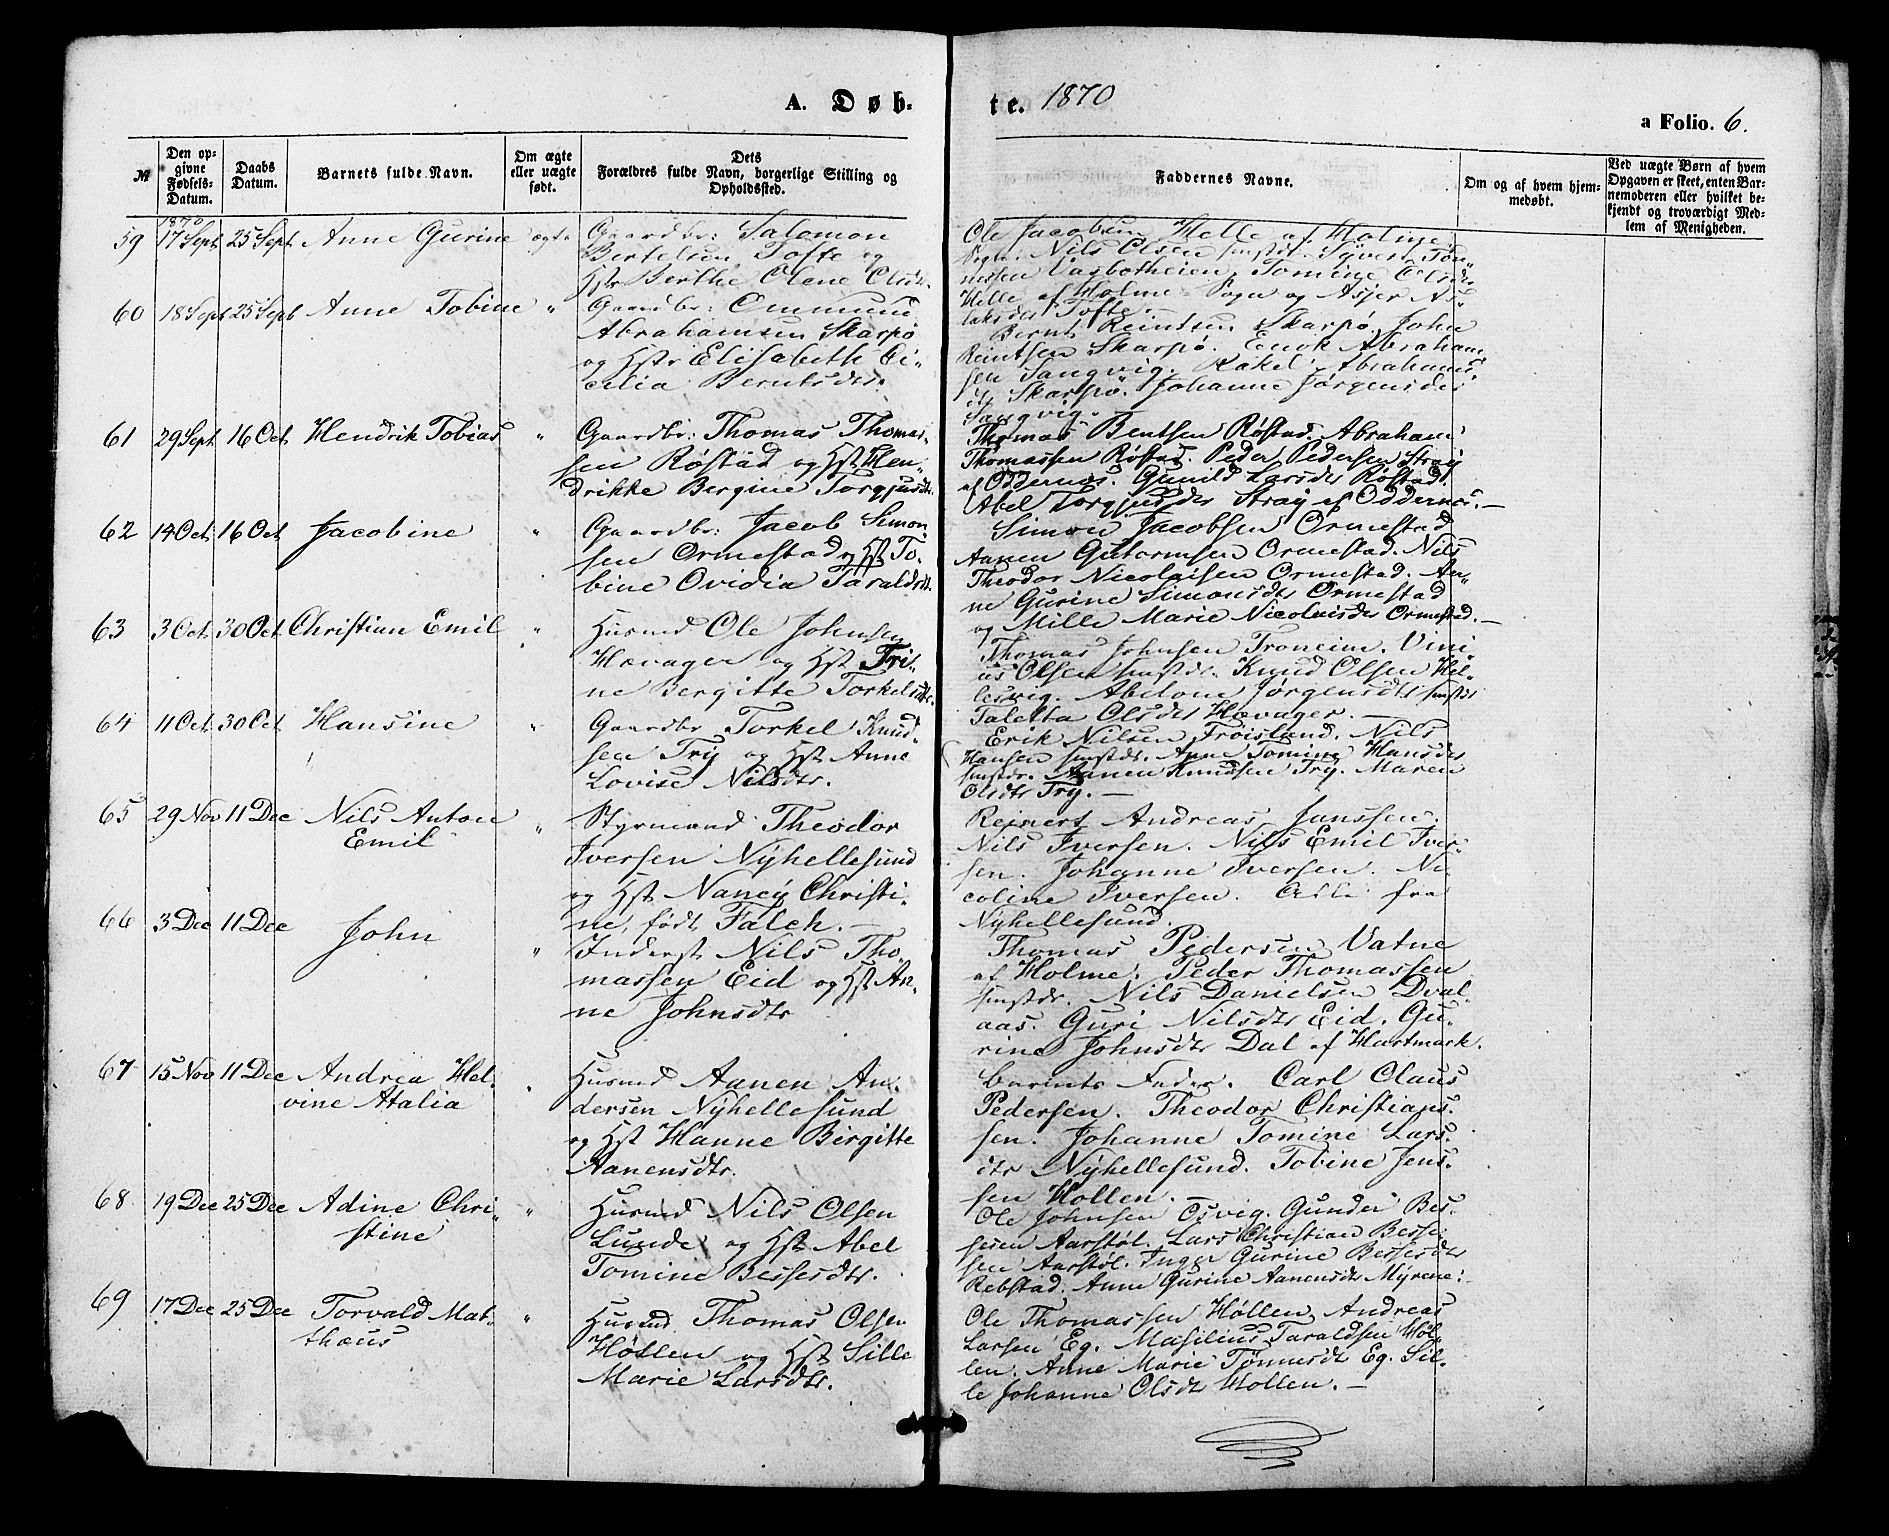 A. Døb-
te. 1870
a Folio. 6.
№
Den op-
givne
Fødsels-
Datum.
Daabs
Datum.
Barnets fulde Navn.
Om ægte
eller uægte
født.
Dets
Forældres fulde Navn, borgerlige Stilling og
Opholdssted.
Faddernes Navne.
Om og af hvem hjem-
medøbt.
Ved uægte Børn af hvem
Opgaven er skeet, enten Bar-
nemoderen eller hvilket be-
kjendt og troværdigt Med-
lem af Menigheden.
1870
59 17 Sept 25 Sept Anne Gurine ægte Gaardbr: Salomon
Bertelsen Tofte og
Hst Berthe Olene Olsdtr.
Ole Jacobsen Helle af Holme
Sogn. Nils Olsen smstdr. Syvert Tøn-
nessen Vasbotheien. Tomine Olsdtr
Helle af Holme Sogn og Asjer As-
laksdtr Tofte.
60 18 Sept 25 Sept Anne Tobine " Gaardbr: Ommund
Abrahamsen Skarpø
og Hstr Elisabeth Ce-
celia Berntsdtr.
Bernt Reintsen Skarpø. John
Reintsen Skarpø. Enok Abraham-
sen Sangvig. Rakel Abrahams-
dtr Skarpø. Johanne Jørgensdtr
Sangvig.
61 29 Sept 16 Oct Hendrik Tobias " Gaardbr: Thomas Thomas-
sen Røstad og Hst Hen-
drikke Bergine Torgjusdtr.
Thomas Bentsen Røstad. Abraham
Thomassen Røstad. Peder Pedersen Stray
af Oddernes. Gunild Larsdtr Røstad.
Abel Torgjusdtr Stray af Oddernes.—
62 14 Oct 16 Oct Jacobine " Gaardbr: Jacob Simon-
sen Ormestad og Hst To-
bine Ovidia Taraldsdtr.
Simon Jacobsen Ormestad
Aanen Gutormsen Ormestad. Nils
Theodor Nicolaisen Ormestad. An-
ne Gurine Simonsdtr Ormestad
og Mille Marie Nicolaisdtr Ormestad.—
63 3 Oct 30 Oct Christian Emil " Husmd Ole Johnsen
Hævager og Hst Tri-
ne Bergitte Torkelsdtr.
Thomas Johnsen Troneim. Vini-
us Olsen smstdr. Knud Olsen Hel-
lesvig. Abelone Jørgensdtr smstdr
Taletta Olsdtr Hævager.—
64 11 Oct 30 Oct Hansine " Gaardbr Torkel Knud-
sen Try og Hst Anne
Lovise Nilsdtr.
Erik Nilsen Frøisland. Nils
Hansen smstdr. Anne Tomine Hansdtr
smstdr. Aanen Knudsen Try. Maren
Olsdtr Try.—
65 29 Nov 11 Dec Nils Anton
Emil
" Styrmand Theodor
Iversen Nÿhellesund
og Hst Nancÿ Christi-
ne, født Falch.—
Reinert Andreas Janssen.
Nils Iversen. Nils Emil Iver-
sen. Johanne Iversen. Ni-
coline Iversen. Alle fra
Nÿhellesund.
66 3 Dec 11 Dec John " Inderst Nils Tho-
massen Eid og Hst An-
ne Johnsdtr
Thomas Pedersen Vatne
af Holme. Peder Thomassen
smstdr. Nils Danielsen Dval-
aas. Guri Nilsdtr Eid. Gu-
rine Johnsdtr Dal af Hartmark.
67 15 Nov 11 Dec Andrea Hel-
vine Atalia
" Husmd Aanen An-
dersen Nÿhellesund
og Hst Hanne Birgitte
Aanensdtr.
Barnets Fader. Carl Claus
Pedersen. Theodor Christians-
sen. Johanne Tomine Lars-
dtr Nÿhellesund. Tobine Jens-
sen Høllen.
68 19 Dec 25 Dec Adine Chri-
stine
" Husmd Nils Olsen
Lunde og Hst Abel
Tomine Bessesdtr.
Ole Johnsen Osvig. Gunder Bes-
sesen Aarstøl. Lars Christian Besse-
sen Aarstøl. Inger Gurine Bessesdtr
Rebstad. Anne Gurine Aanensdtr Myrene.
69 17 Dec 25 Dec Torvald Mat-
thæus
" Husmd Thomas Olsen
Høllen og Hst Sille
Marie Larsdtr.
Ole Thomassen Høllen. Andreas
Larsen Eg. Masilius Taraldsen Høl-
len. Anne Marie Tønnesdtr Eg. Sil-
le Johanne Olsdtr Høllen.—